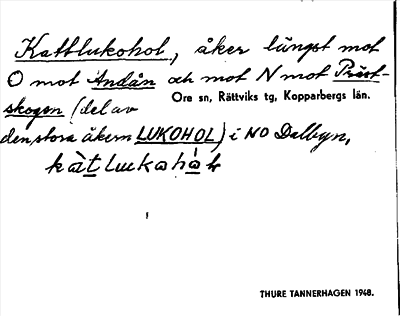 Kattlukohol, åker längst mot
O mot Andån och mot N mot Präst-
skogen (del av
Ore sn, Rättviks tg, Kopparbergs län.
den stora åkern LUKOHOL) i NO Dalbyn,
THURE TANNERHAGEN 1948.